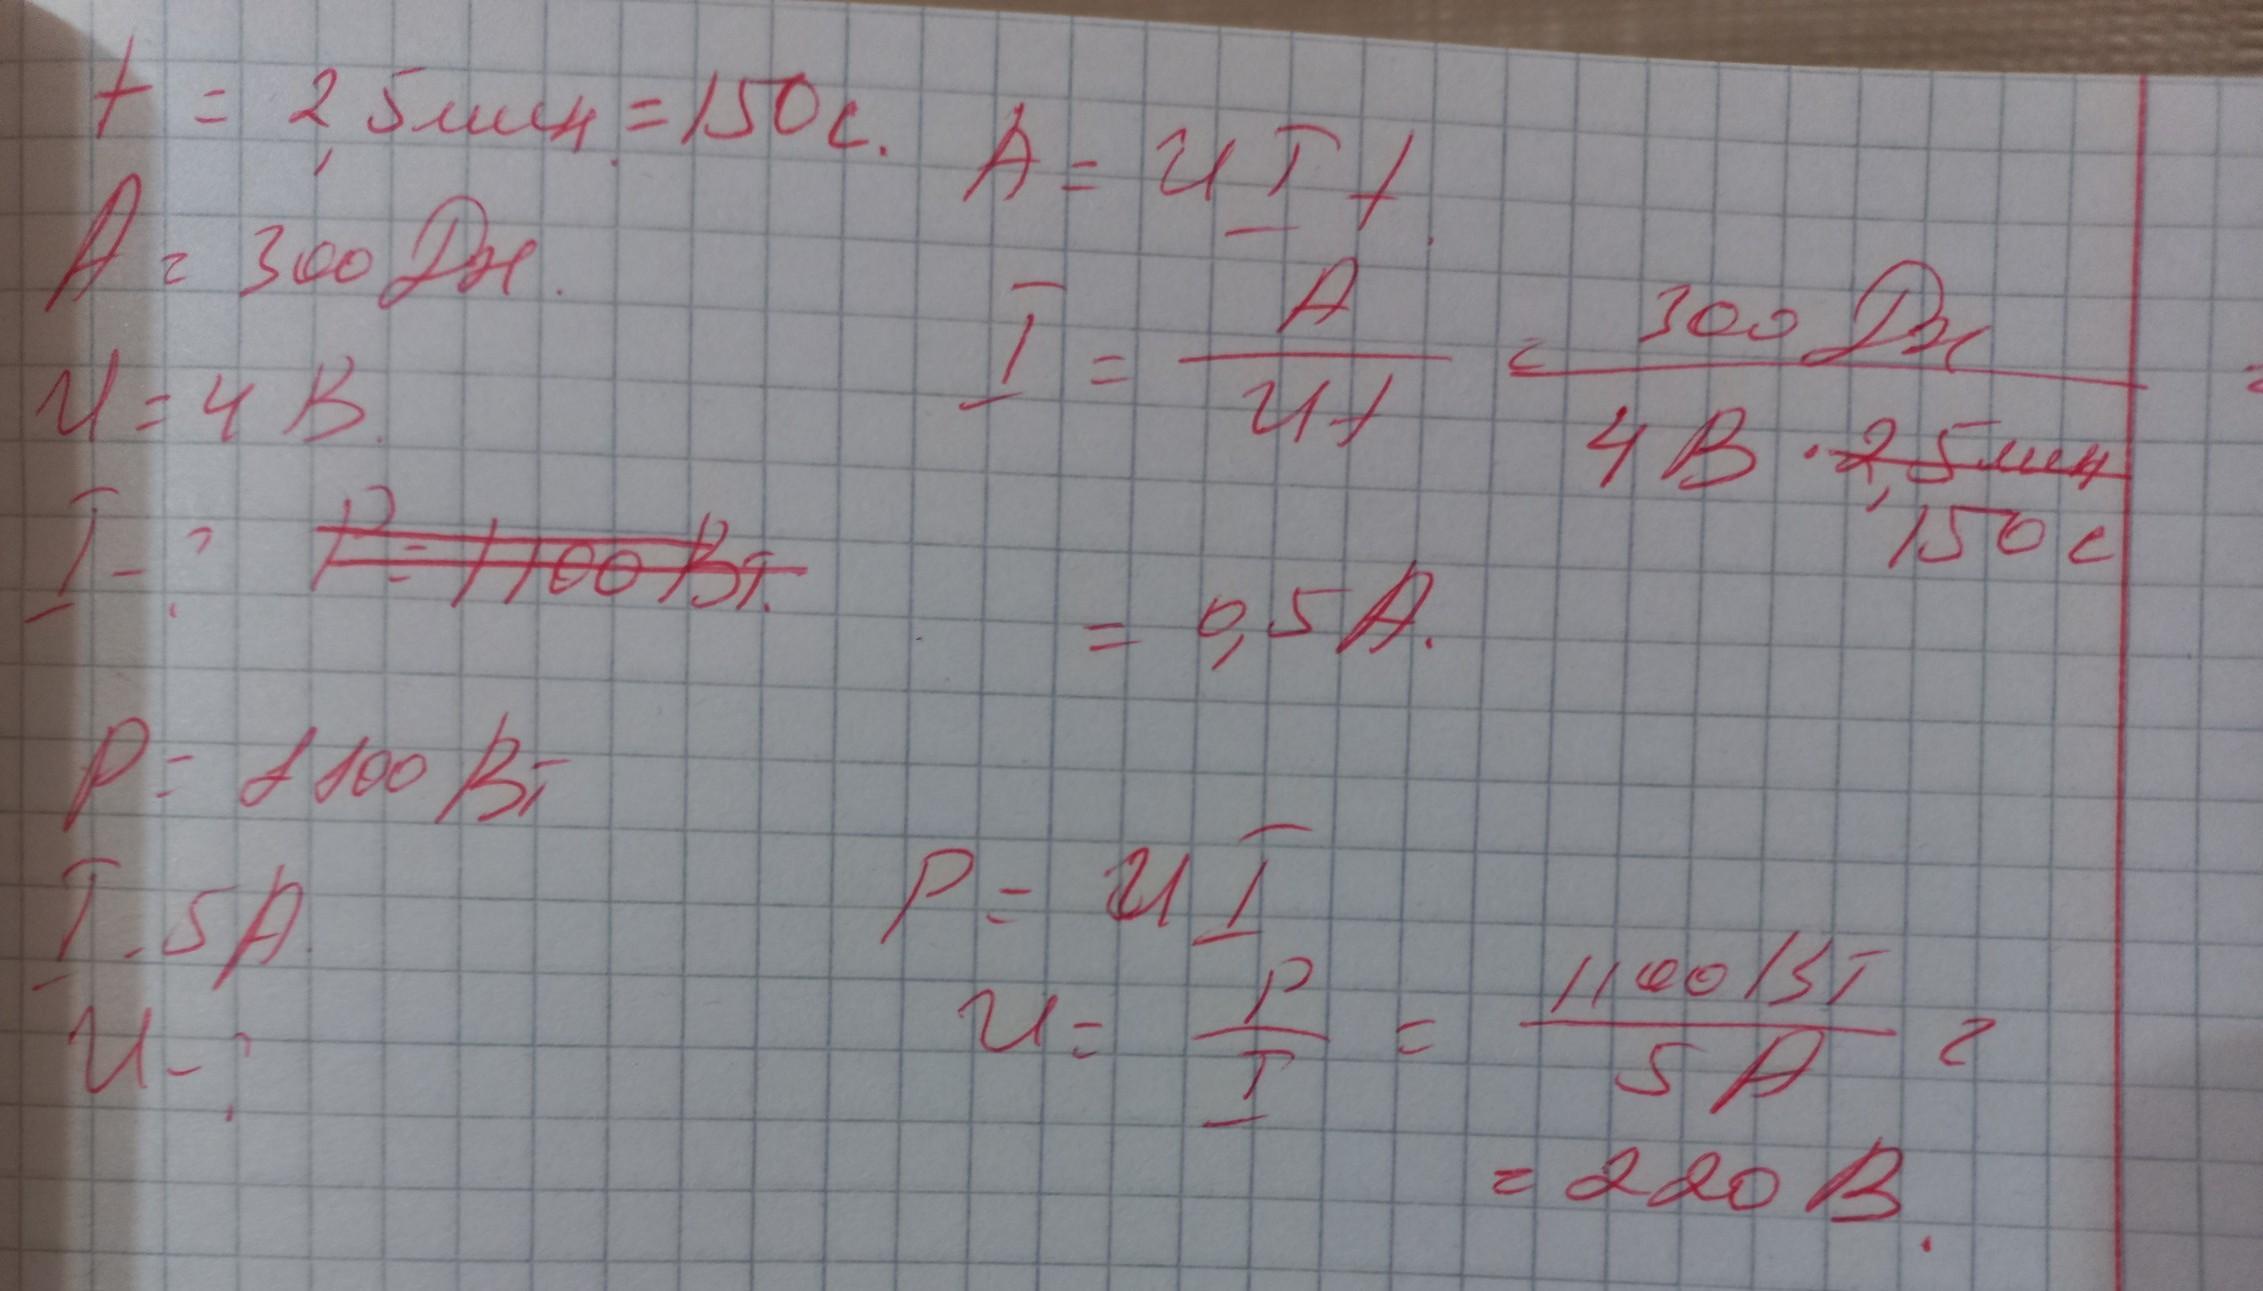 t = 2,5 мин. = 150 с.
A = 300 Дж.
U = 4 В.
I - ? P = 1100 Вт.
A = U I t.
I = A / Ut = 300 Дж / 4 В · 2,5 мин 150 с =
= 0,5 А.
P = 1100 Вт
I - 5 А.
U - ?
P = U I
U = P / I = 1100 Вт / 5 А =
= 220 В.